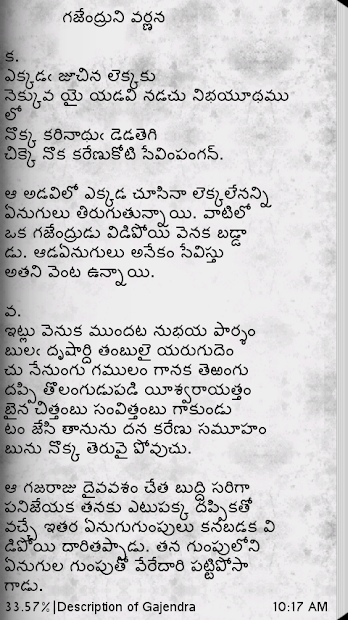 గజేంద్రుని వర్ణన
క.
ఎక్కడఁ జూచిన లెక్కకు
నెక్కువ యై యడవి నడచు నిభయూథము
లో
నొక్క కరినాథుఁ డెడతెగి
చిక్కె నొక కరేణుకోటి సేవింపంగన్.
ఆ అడవిలో ఎక్కడ చూసినా లెక్కలేనన్ని
ఏనుగులు తిరుగుతున్నాయి. వాటిలో
ఒక గజేంద్రుడు విడిపోయి వెనక బడ్డా
డు. ఆడఏనుగులు అనేకం సేవిస్తు
అతని వెంట ఉన్నాయి.
వ.
ఇట్లు వెనుక ముందట నుభయ పార్శ్వం
బులఁ దృషార్ది తంబులై యరుగుదెం
చు నేనుంగు గములం గానక తెఱంగు
దప్పి తొలంగుడుపడి యీశ్వరాయత్తం
బైన చిత్తంబు సంవిత్తంబు గాకుండు
టం జేసి తానును దన కరేణు సమూహం
బును నొక్క తెరువై పోవుచు.
ఆ గజరాజు దైవవశం చేత బుద్ది సరిగా
పనిజేయక తనకు ఎటుపక్క దప్పికతో
వచ్చే ఇతర ఏనుగుగుంపులు కనబడక వి
డిపోయి దారితప్పాడు. తన గుంపులోని
ఏనుగుల గుంపుతో వేరేదారి పట్టిపోసా
గాడు.
33.57%|Description of Gajendra 10:17 AM